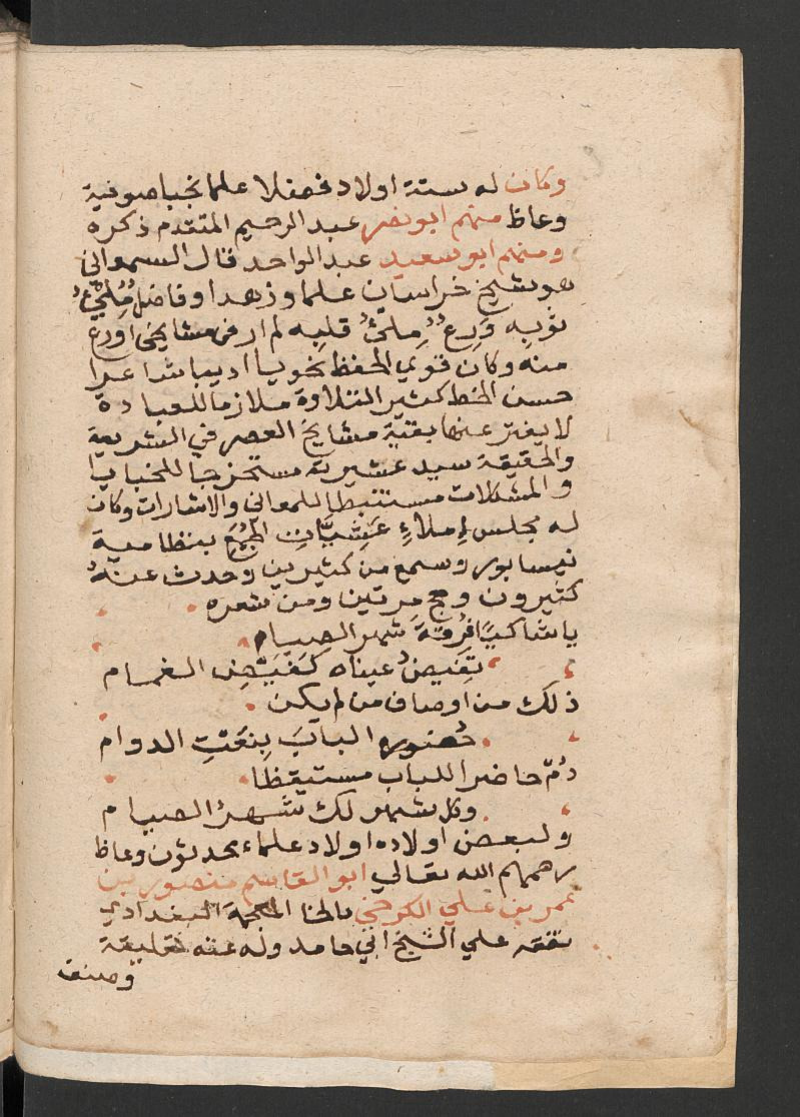 وكان له ستة اولاد فضلا علما نجبا صوفية
وعاظ منهم ابو نصر عبد الرحيم المتقدم ذكره
ومنهم ابو سعيد عبد الواحد قال السمعاني
هو شيخ خراسان علما وزهدا وفاضل مُلِئَ
ثوبه وَرِعٌ مِلئُ قلبه لم ار في مشايخي اورع
منه وكان قوي الحفظ نحويا اديبا شاعرا
حسن الخط كثير التلاوة ملازما للعبادة
لا يفتر عنها بقية مشايخ العصر في الشريعة
والحقيقة سيد عشيرته مستخرجا للخبايا
والمشكلات مستنبطا للمعاني والاشارات وكان
له مجلس إملاءٍ عَشِيَّاتِ الجُمَع بنظامية
نيسابور وسمع من كثيرين وحدث عنهُ
كثيرون وحج مرتين ومن شعره
يا شاكيًا فُرقةَ شهر الصيام
تفيضُ عيناه كفَيْضِ الغمام
ذلك من اوصاف من لم يكن
حضوره البابَ بِنَعْتِ الدوام
دُمْ حاضرا للباب مستيقظا
وكل شهر لك شَهرُ الصيام
ولبعض اولاده اولاد علماء محدثون وعاظ
رحمهم الله تعالي ابو القاسم منصور بن
عمر بن علي الكرخي بالخا المعجمة البغدادي
تفقه علي الشيخ ابي حامد وله عنه تعليقة
وصنف